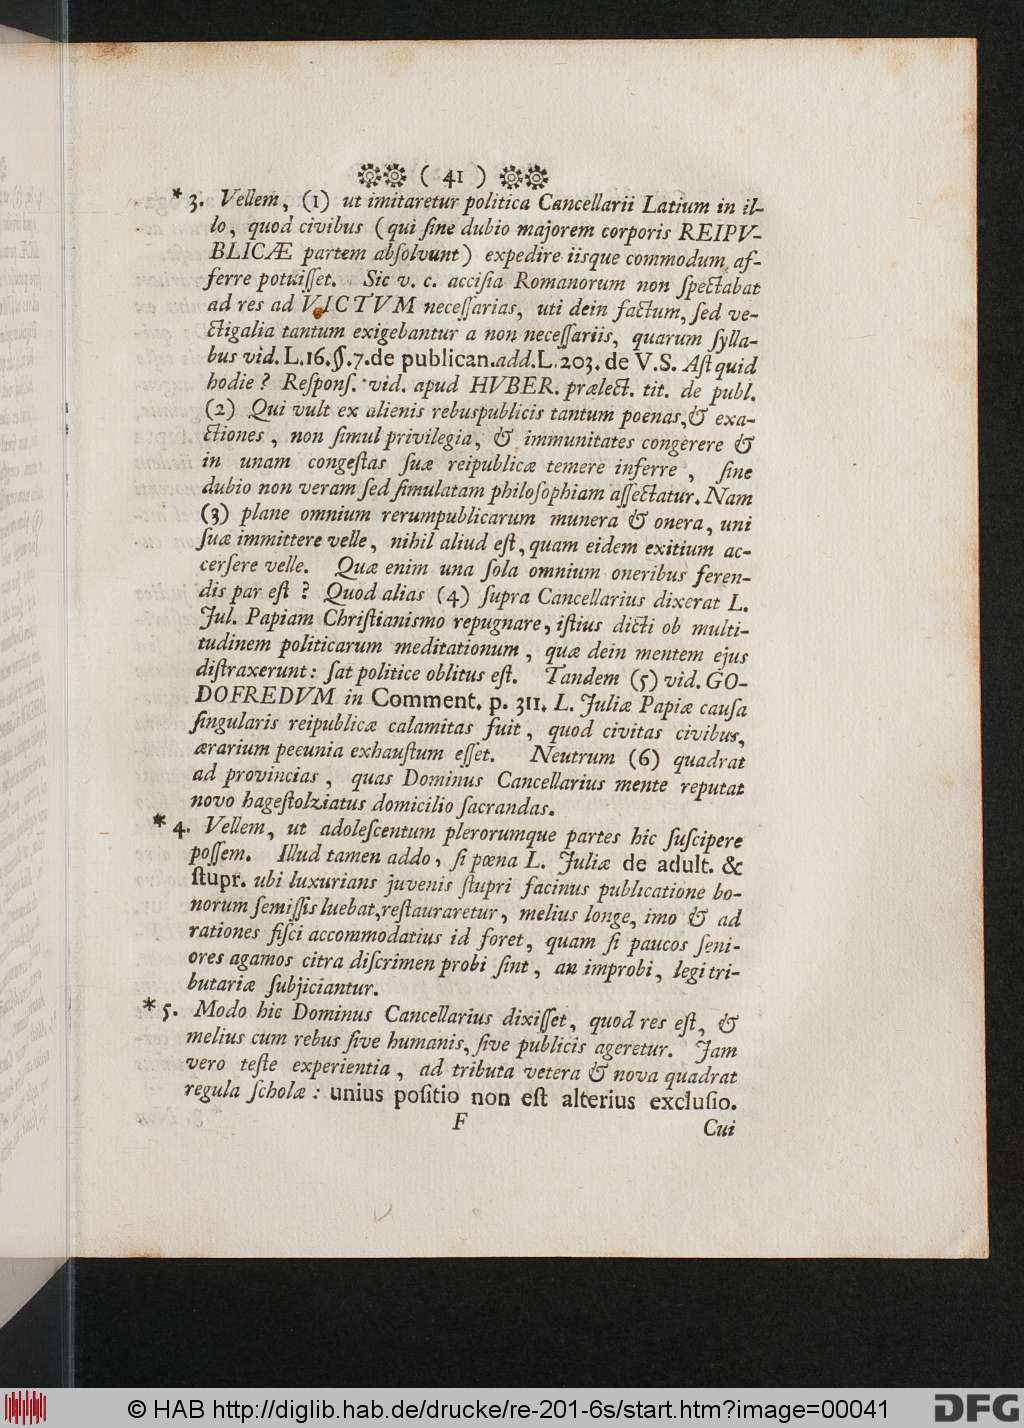 ( 41 )
* 3. Vellem, (1) ut imitaretur politica Cancellarii Latium in il-
lo, quod civibus (qui ſine dubio majorem corporis REIPV-
BLICÆ partem abſolvunt) expedire iisque commodum af-
ferre potuiſſet. Sic v. c. acciſia Romanorum non ſpectabat
ad res ad VICTVM neceſſarias, uti dein factum, ſed ve-
ctigalia tantum exigebantur a non neceſſariis, quarum ſylla-
bus vid. L.16.§.7.de publican. add. L. 203. de V.S. Aſt quid
hodie? Reſponſ. vid. apud HVBER. prælect. tit. de publ.
(2) Qui vult ex alienis rebuspublicis tantum poenas, & exa-
ctiones, non ſimul privilegia, & immunitates congerere &
in unam congeſtas ſuæ reipublicæ temere inferre, ſine
dubio non veram ſed ſimulatam philoſophiam aſſectatur. Nam
(3) plane omnium rerumpublicarum munera & onera, uni
ſuæ immittere velle, nihil aliud eſt, quam eidem exitium ac-
cerſere velle. Quæ enim una ſola omnium oneribus feren-
dis par eſt? Quod alias (4) ſupra Cancellarius dixerat L.
Jul. Papiam Chriſtianiſmo repugnare, iſtius dicti ob multi-
tudinem politicarum meditationum, quæ dein mentem ejus
diſtraxerunt: ſat politice oblitus eſt. Tandem (5) vid. GO-
DOFREDVM in Comment. p. 311. L. Juliæ Papiæ cauſa
ſingularis reipublicæ calamitas fuit, quod civitas civibus,
ærarium pecunia exhauſtum eſſet. Neutrum (6) quadrat
ad provincias, quas Dominus Cancellarius mente reputat
novo hageſtolziatus domicilio ſacrandas.
* 4. Vellem, ut adoleſcentum plerorumque partes hic ſuſcipere
poſſem. Illud tamen addo, ſi pœna L. Juliæ de adult. &
ſtupr. ubi luxurians juvenis ſtupri facinus publicatione bo-
norum ſemiſſis luebat, reſtauraretur, melius longe, imo & ad
rationes fiſci accommodatius id foret, quam ſi paucos ſeni-
ores agamos citra diſcrimen probi ſint, an improbi, legi tri-
butariæ ſubjiciantur.
* 5. Modo hic Dominus Cancellarius dixiſſet, quod res eſt, &
melius cum rebus ſive humanis, ſive publicis ageretur. Jam
vero teſte experientia, ad tributa vetera & nova quadrat
regula ſcholæ: unius poſitio non eſt alterius excluſio.
F
Cui
© HAB http://diglib.hab.de/drucke/re-201-6s/start.htm?image=00041
DFG